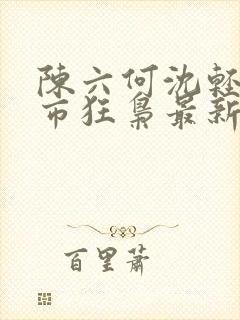 陳六何沈輕
市狂梟最新
百里蕭